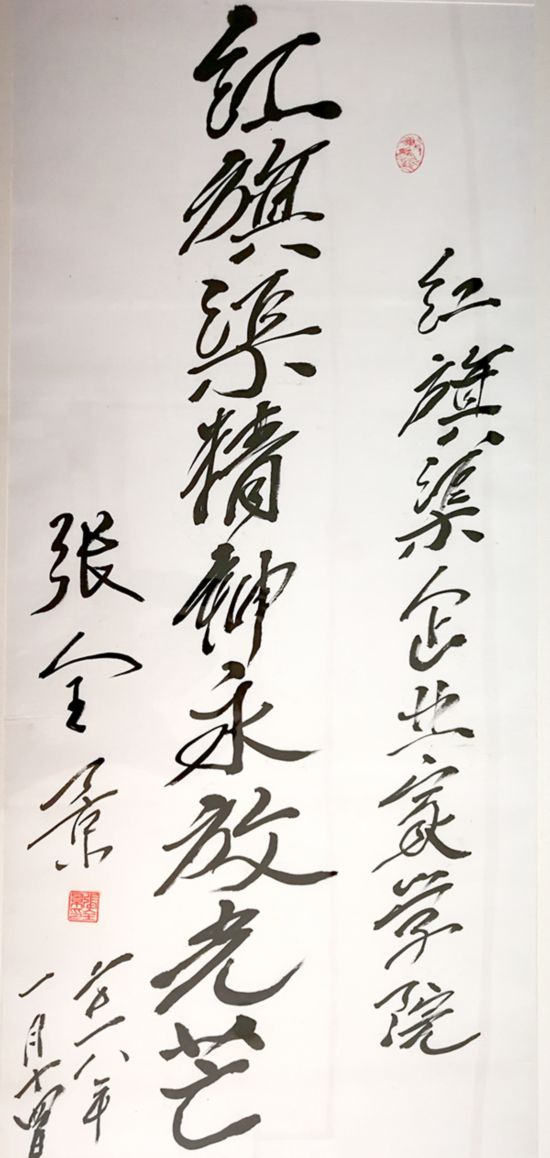 红旗渠企业家学院
红旗渠精神永放光芒
张全景
二〇一八年
一月十四日